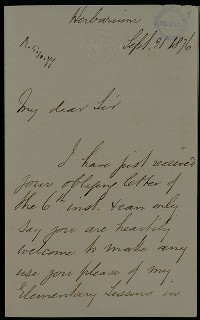 Herbarium
Sept. 21 1876
My dear Sir
I have just received
your obliging letter of
the 6th inst. I can only
say you are heartily
welcome to make any
use you please of my
Elementary Lessons in